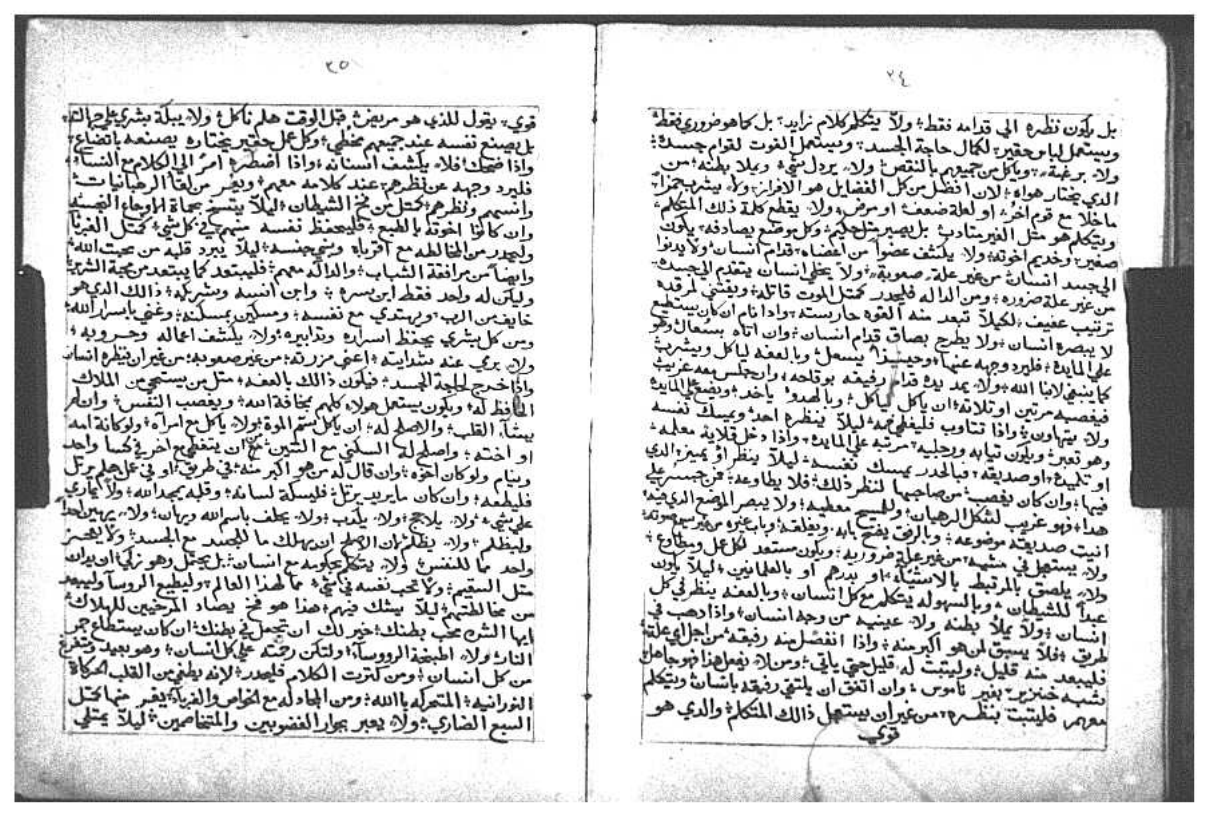 ٢٤
بل يكون نظره الى قدامه فقط؛ ولا يتكلم كلام زايد؛ بل كما هو ضروري فقط؛
ويستعمل لباس حقير؛ لكمال حاجة الجسد؛ ويستعمل القوت لقوام جسده؛
ولا برغبة؛ وياكل من جميعهم بالنقص؛ ولا يردل شي؛ ويملا بطنه؛ من
الدي يختار هواه؛ لان افضل من كل الفضايل هو الافراز؛ ولا يشرب خمراً
ماخلا مع قوم اخر؛ او لعلة ضعف؛ او مرض؛ ولا يقطع كلمة ذلك المتكلم؛
ويتكلم هو مثل الغير متادب؛ بل يصير مثل حكيم؛ وكل موضع يصادفه؛ يكون
صغير؛ وخديم اخوته؛ ولا يكشف عضواً من اعضاه؛ قدام انسان؛ ولا يدنوا
الى جسد انسان؛ من غير علة صعوبة؛ ولا يخلي انسان يتقدم الى جسده
من غير علة ضروره؛ ومن الداله فليحدر كمتل الموت قاتله؛ ويقتني لمرقده
ترتيب عفيف؛ لكيلا تبعد منه القوه حارسته؛ وادا نام ان كان يستطيع
لا يبصره انسان؛ ولا يطرح بصاق قدام انسان؛ وان اتاه سعال وهو
على المايدة؛ فليرد وجهه عنها؛ وحينيد يسعل؛ وبالعفه لياكل ويشرب؛
كما ينبغي لابنا الله؛ ولا يمد يده قدام رفيقه بوقاحه؛ وان جلس معه غريب
فيغصبه مرتين او تلاته؛ ان ياكل لياكل؛ وبالهدوا ياخد؛ ويضع على المايده
ولا يتهاون؛ وادا تتاوب فليغطي فمه؛ ليلا ينظره احد؛ ويمسك نفسه
وهو تعبر؛ ويكون تيابه ورجليه؛ مرتبه على المايدة؛ وادا دخل قلاية معلمه؛
او تلميده؛ او صديقه؛ فبالحدر يمسك نفسه؛ ليلا ينظر او يميز؛ الدي
فيها؛ وان كان يغصب؛ من صاحبها لنظر ذلك؛ فلا يطاوعه؛ فمن جسر على
هدا؛ فهو غريب لشكل الرهبان؛ وللمسيح معطيه؛ ولا يبصر الموضع الدي فيه
انيت صديقه موضوعه؛ وبالرفق يفتح بابه ويغلقه؛ وباب غيره من غير سمع صوته؛
ولا يستعجل في مشيه؛ من غير علة ضروريه؛ ويكون مستعد لكل عمل ويطاوع؛
ولا يلصق بالمرتبط بالاشياء؛ او بدرهم او بالعلمانيين؛ ليلا يكون
عبداً للشيطان؛ وبالسهوله يتكلم مع كل انسان؛ وبالعفه ينظر في كل
انسان؛ ولا يملا بطنه ولا عينيه من وجه انسان؛ وادا دهب في
طريق؛ فلا يسبق لمن هو اكبر منه؛ وادا انفصل منه رفيقه؛ من اجل اي علة؛
فليبعد منه قليل؛ وليتبت له قليل حتى ياتي؛ ومن لا يفعل هدا فهو جاهل
شبه خنزير؛ بغير ناموس؛ وان اتفق ان يلتقي رفيقه بانسان ويتكلم
معهم فليتبت بنظره؛ من غير ان يستعجل ذالك المتكلم؛ والدي هو
قوي
٢٥
قوي؛ يقول للذي هو مريض؛ قبل الوقت هلم ناكل؛ ولا يبكة بشري على جهالته
بل يصنع نفسه عند جميعهم مخطي؛ وكل عمل حقير يختاره يصنعه باتضاع؛
وادا ضحك؛ فلا يكشف اسنانه؛ وادا اضطره امر الى الكلام مع النساء؛
فليرد وجهه عن نظرهم؛ عند كلامه معهم؛ ويفر من لقا الرهبانيات؛
وانسهم ونظرهم؛ كمتل من فخ الشيطان؛ ليلا يتسخ بحماة الاوجاع الفضيه
وان كانوا اخوته بالطبع؛ فليحفظ نفسه منهم؛ في كل شي؛ كمتل الغربا
وليحدر من المخالطه مع اقرباه؛ وبني جنسه؛ ليلا يبرد قلبه من محبت الله؛
وايضاً من مرافقة الشباب؛ والداله معهم؛ فليبتعد كما يبتعد من محبة الشرير؛
وليكن له واحد فقط ابن سره؛ وابن انسه وشريكه؛ ذالك الدي هو
خايف من الرب؛ ويهتدي مع نفسه؛ ومسكين بمسكنه؛ وغني باسرار الله؛
ومن كل بشري يحفظ اسراره وتدابيره؛ ولا يكشف اعماله وحروبه؛
واذا خرج لحاجة الجسد؛ فيكون ذالك بالعفه؛ متل من يستحي من الملاك
الحافظ له؛ ويكون يستعمل هولاء كلهم بمخافة الله؛ ويغصب النفس؛ وان لم
يشا القلب؛ والاصلح له؛ ان ياكل سم الموت؛ ولا ياكل مع امراه؛ ولو كانة امه
او اخته؛ واصلح له السكنى مع التنين؛ من ان يتغطي مع اخر في كسا واحد
وينام ولو كان اخوه؛ وان قال له من هو اكبر منه؛ في طريق؛ او في عمل هلم نرتل
فليطعه؛ وان كان ما يريد يرتل؛ فليسكة لسانه؛ وقلبه يمجد الله؛ ولا يماري
على شي؛ ولا يلاجج؛ ولا يكدب؛ ولا يحلف باسم الله
وليظلم؛ ولا يظلم؛ ان الاصلح ان يهلك ما للجسد مع الجسد؛ ولا يخسر
واحد مما للنفس؛ ولا يتكلم بحكومه مع انسان؛ بل يحتمل وهو زكي؛ ان يدان
متل السقيم؛ ولا تحب نفسه في شي؛ مما لهدا العالم؛ وليطيع الروسا وليبعد
من مخالطتهم؛ ليلا يشتبك فيهم؛ هدا هو فخ يصاد المرخيين للهلاك؛
ايها الشره محب بطنك؛ خير لك ان تجعل في بطنك؛ ان كان يستطاع جمر
النار؛ ولا اطبخة الرووسا؛ ولتكن رحمته على كل انسان؛ وهو بعيد ومتفرغ
من كل انسان؛ ومن كترت الكلام فليحدر؛ لانه يطفي من القلب الحركاة
النورانيه؛ المتحركه بالله؛ ومن المجادله مع الخواص والغربا؛ يفر منها كمتل
السبع الضاري؛ ولا يعبر بجوار الغضوبيين والمتخاصمين؛ ليلا يمتلي